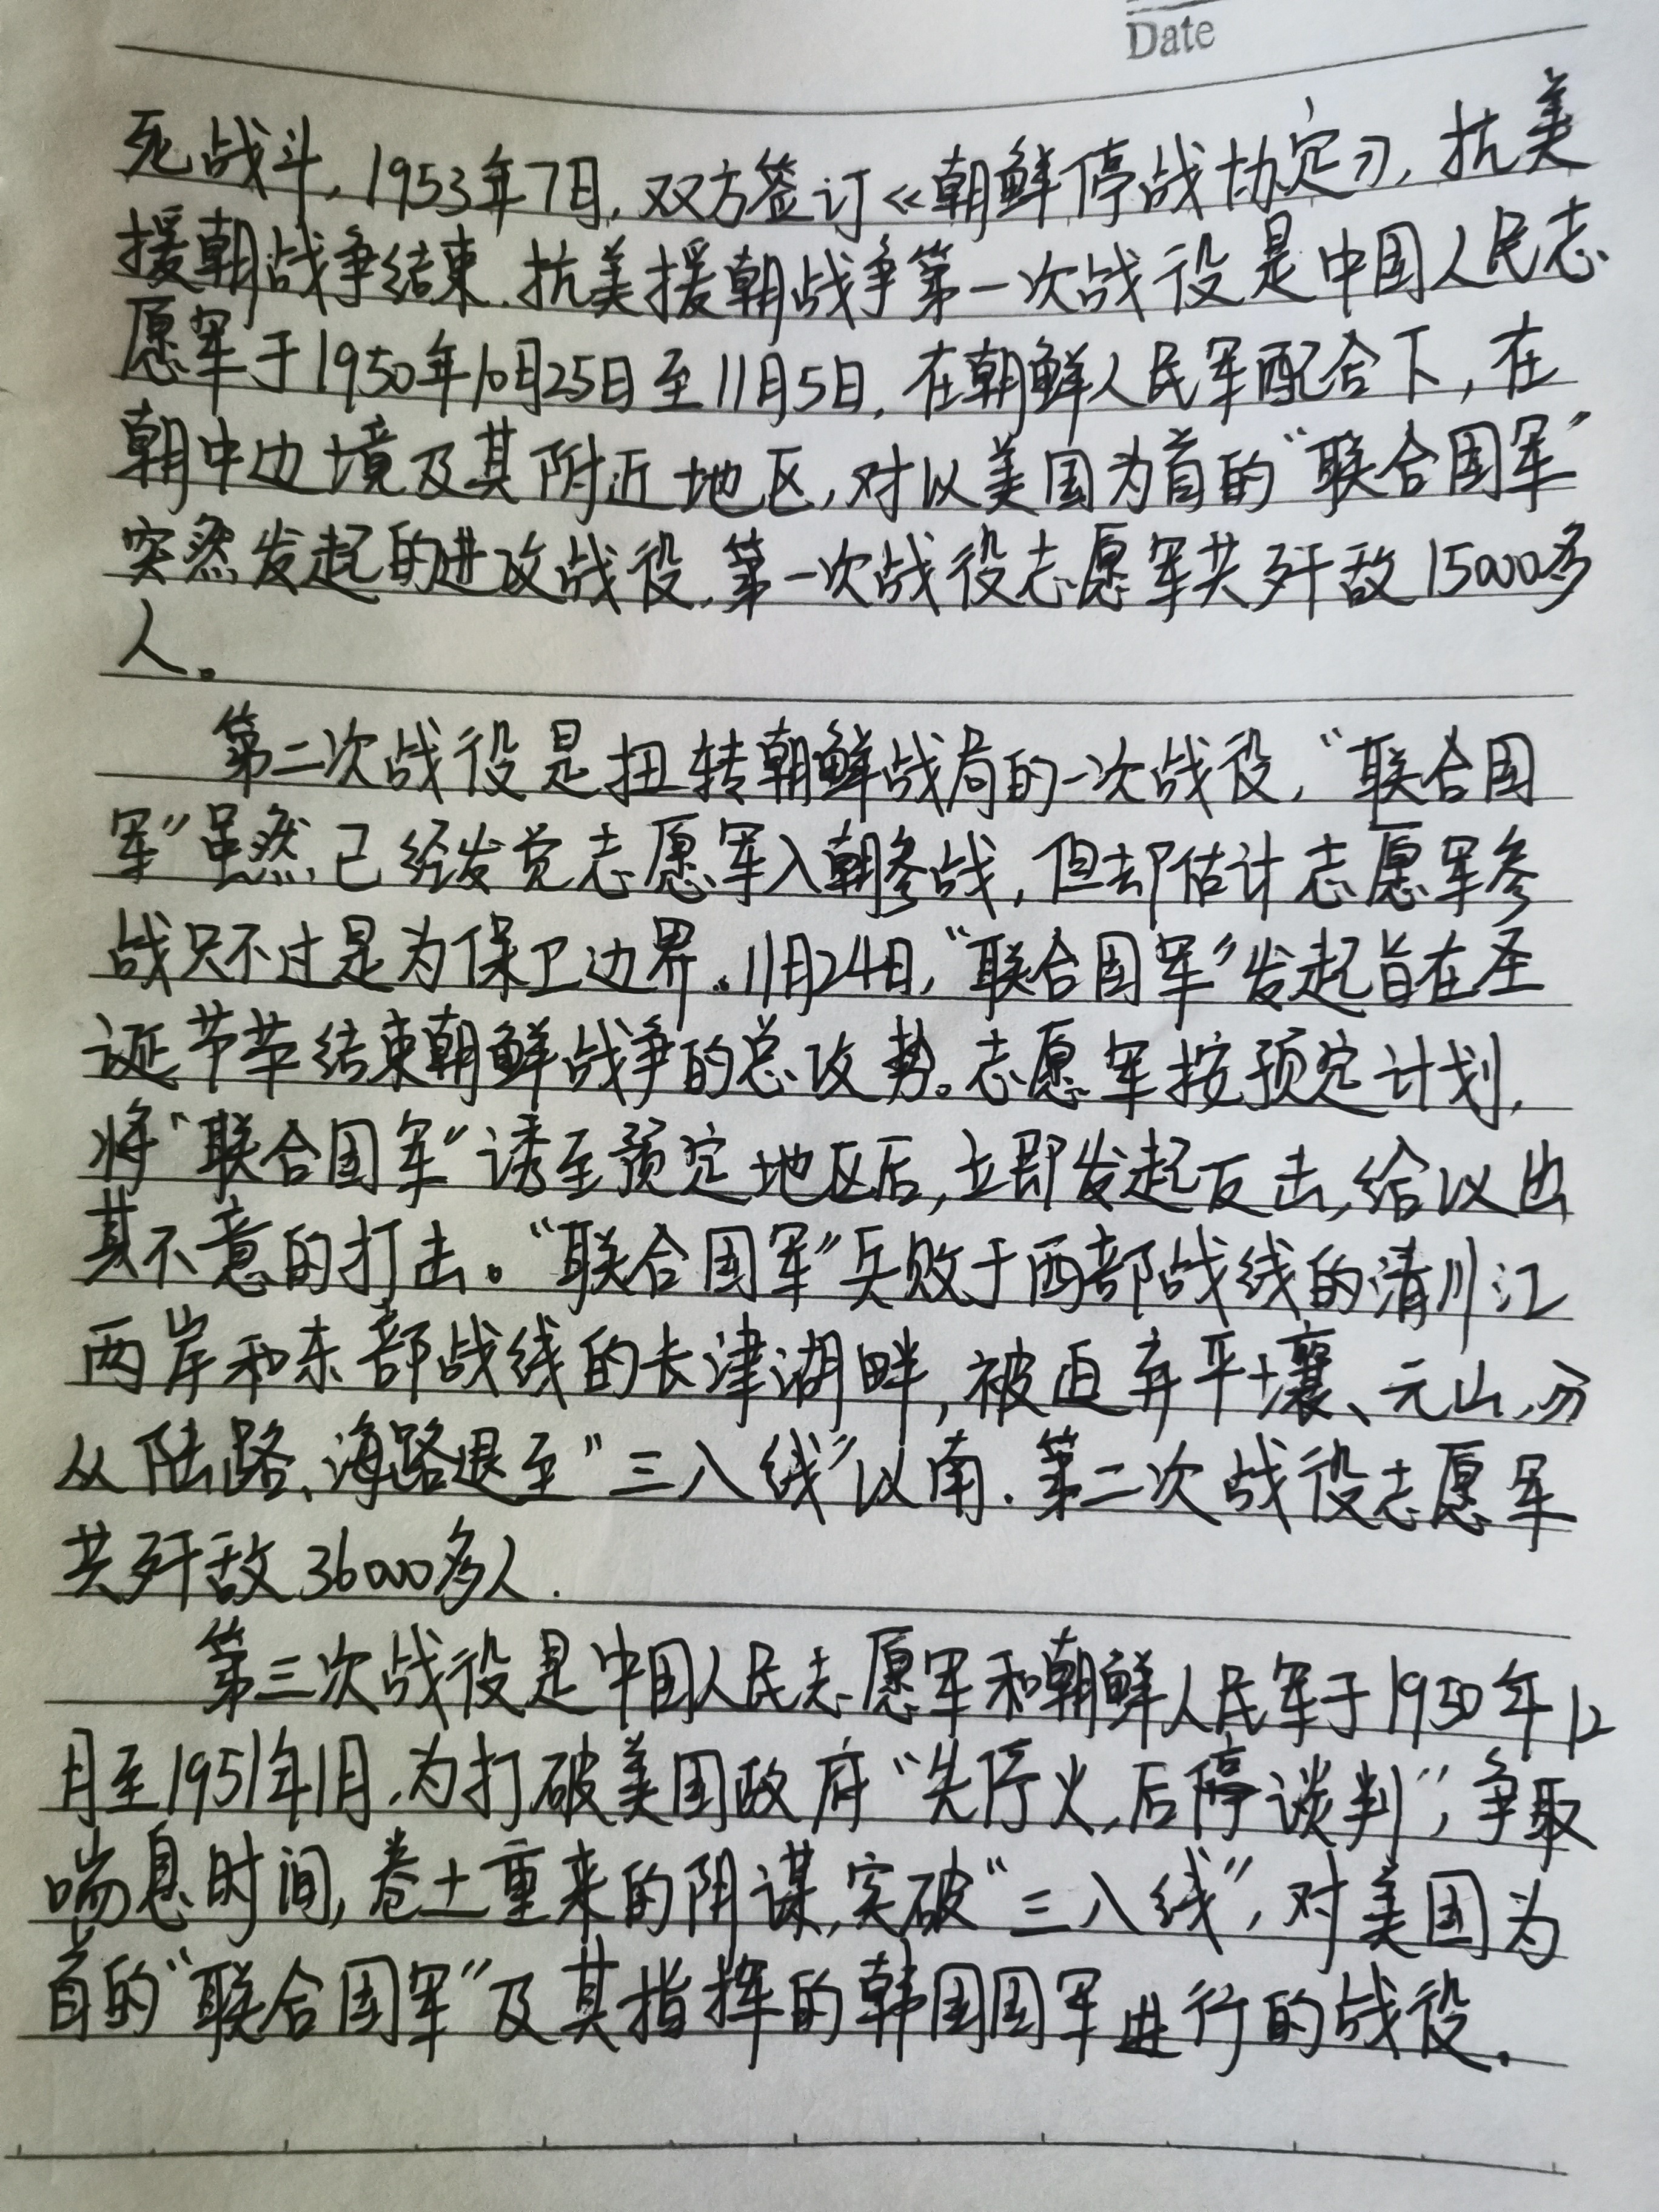 Date
死战斗，1953年7月，双方签订《朝鲜停战协定》，抗美
援朝战争结束．抗美援朝战争第一次战役是中国人民志
愿军于1950年10月25日至11月5日，在朝鲜人民军配合下，在
朝中边境及其附近地区，对以美国为首的“联合国军”
突然发起的进攻战役．第一次战役志愿军共歼敌15000多
人。
第二次战役是扭转朝鲜战局的一次战役，“联合国
军”虽然已经发觉志愿军入朝参战，但却估计志愿军参
战只不过是为保卫边界。11月24日，“联合国军”发起旨在圣
诞节节结束朝鲜战争的总攻势。志愿军按预定计划，
将“联合国军”诱至预定地区后，立即发起反击，给以出
其不意的打击。“联合国军”兵败于西部战线的清川江
两岸和东部战线的长津湖畔，被迫弃平壤、元山，分
从陆路、海路退至“三八线”以南．第二次战役志愿军
共歼敌36000多人．
第三次战役是中国人民志愿军和朝鲜人民军于1950年12
月至1951年1月，为打破美国政府“先停火，后停谈判”，争取
喘息时间，卷土重来的阴谋，突破“三八线”，对美国为
首的“联合国军”及其指挥的韩国国军进行的战役．